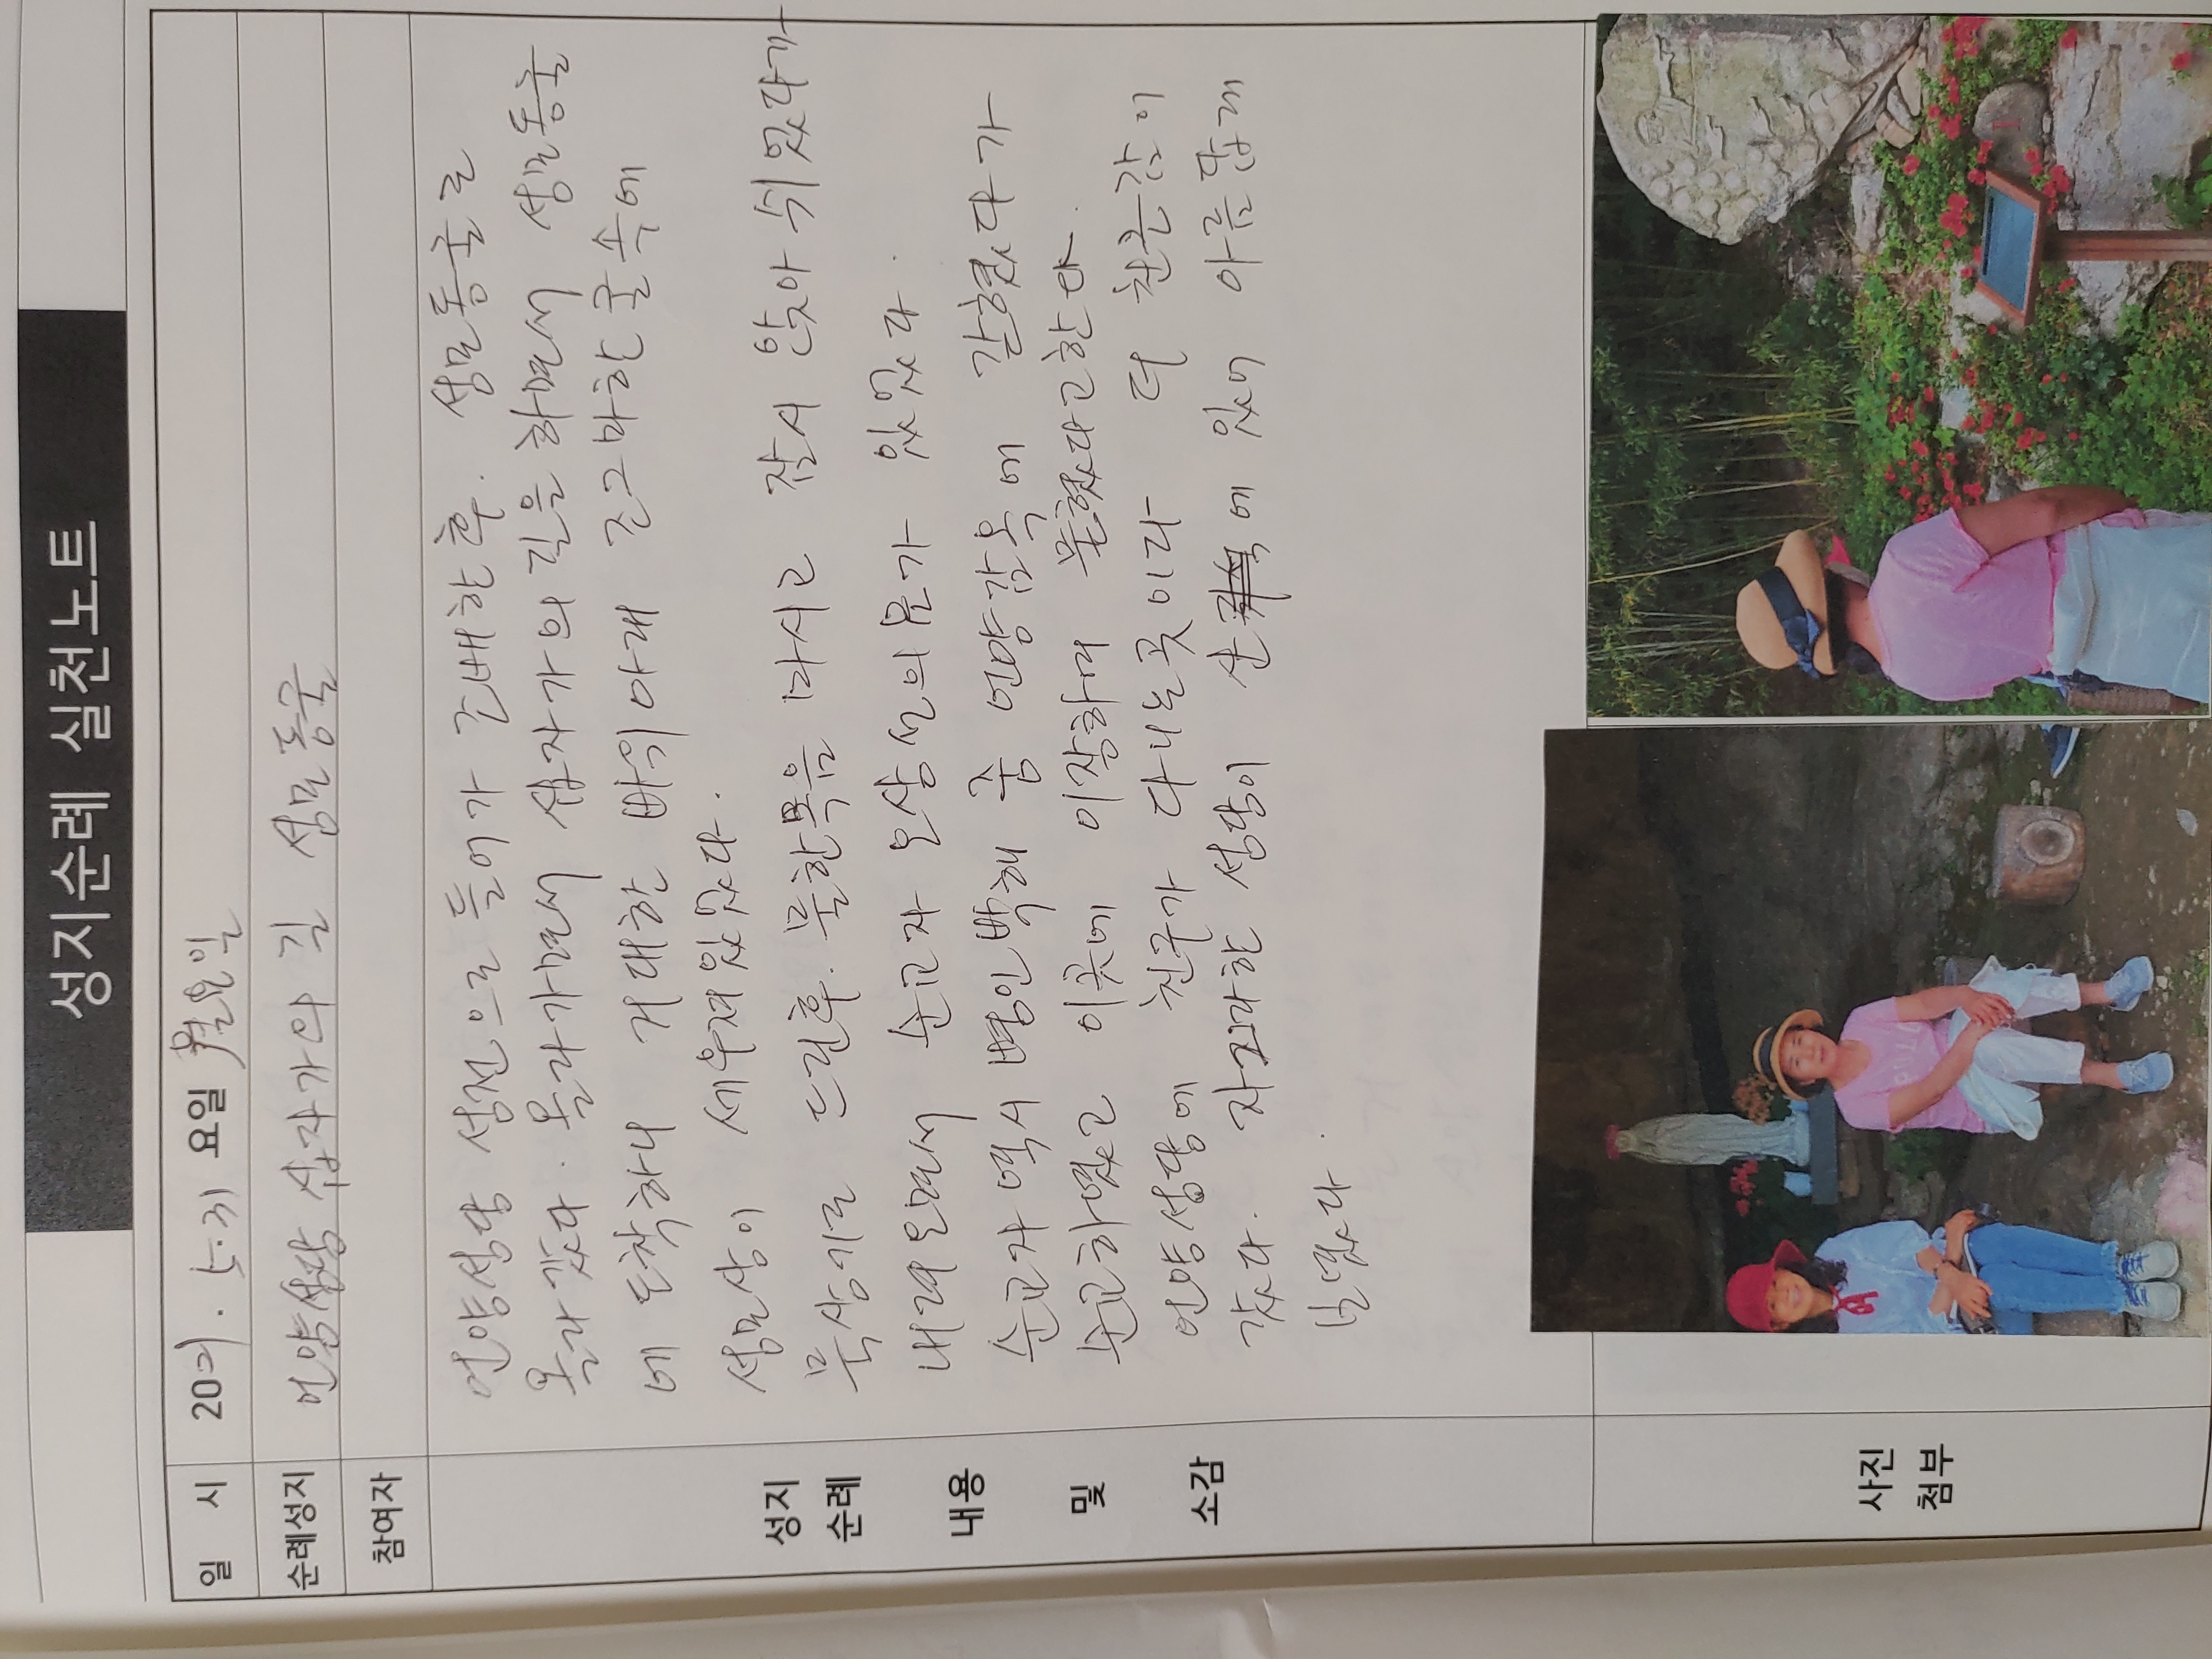 성지순례 실천노트
일 시 2021. 5. 31 요일 월요일
순례성지 언양성당 십자가의 길 성모동굴
참여자
성지
순례
내용
및
소감
언양성당 성전으로 들어가 조배한후. 성모동굴로
올라 갔다. 올라가면서 십자가의 길을 하면서 성모동굴
에 도착하니 거대한 바위아래 조그마한 굴속에
성모상이 세우져있었다.
묵상기도 드린후. 물한목음 마시고 잠시 앉아 쉬었다가
내려오면서 순교자 오상선의 묘가 있었다.
순교자 역시 병인박해 중 언양감옥에 갇혔다가
순교하였고 이곳에 이장하여 묻혔다고한다.
언양성당에 친구가 다니는곳이다 더 친근감이
갔다. 자그마한 성당이 산 에 있어 아름답게
보였다.
사진
첨부